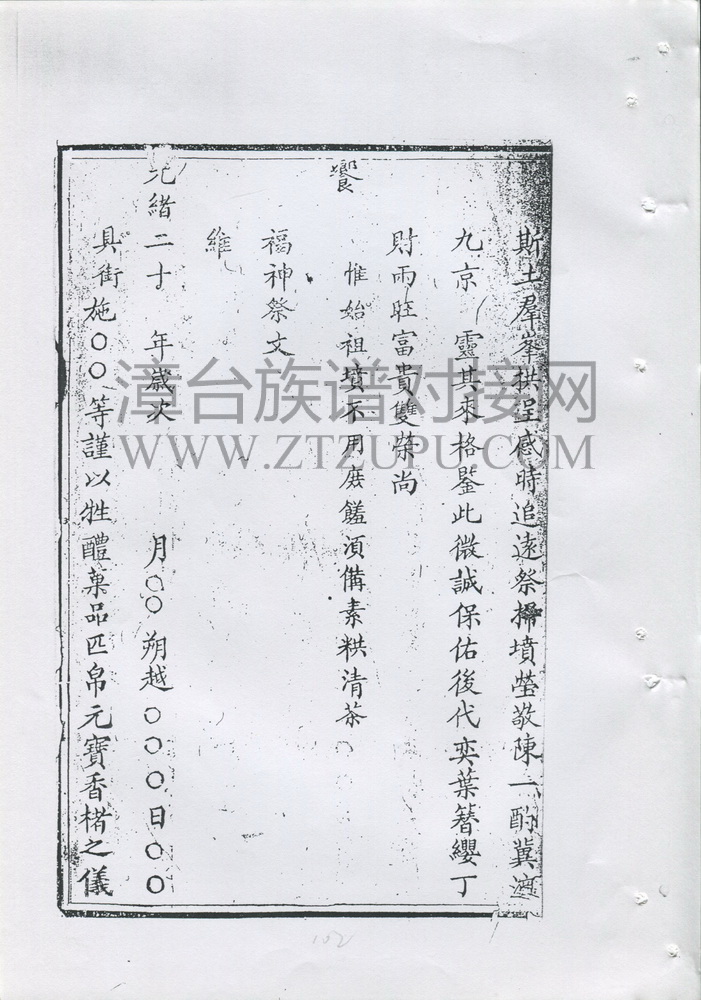 斯土羣峯拱呈感時追遠祭掃墳塋敬陳一酌冀適
九京 靈其來格鑒此微誠保佑後代奕葉簪纓丁
財兩旺富貴雙榮尚
饗
惟始祖墳不用庶饈須備素粿清茶
福神祭文
維
光緒二十 年歲次 月○○朔越○○○日○○
具銜施○○等謹以牲醴菓品匹帛元寶香楮之儀
漳台族谱对接网
WWW.ZTZUPU.COM
102